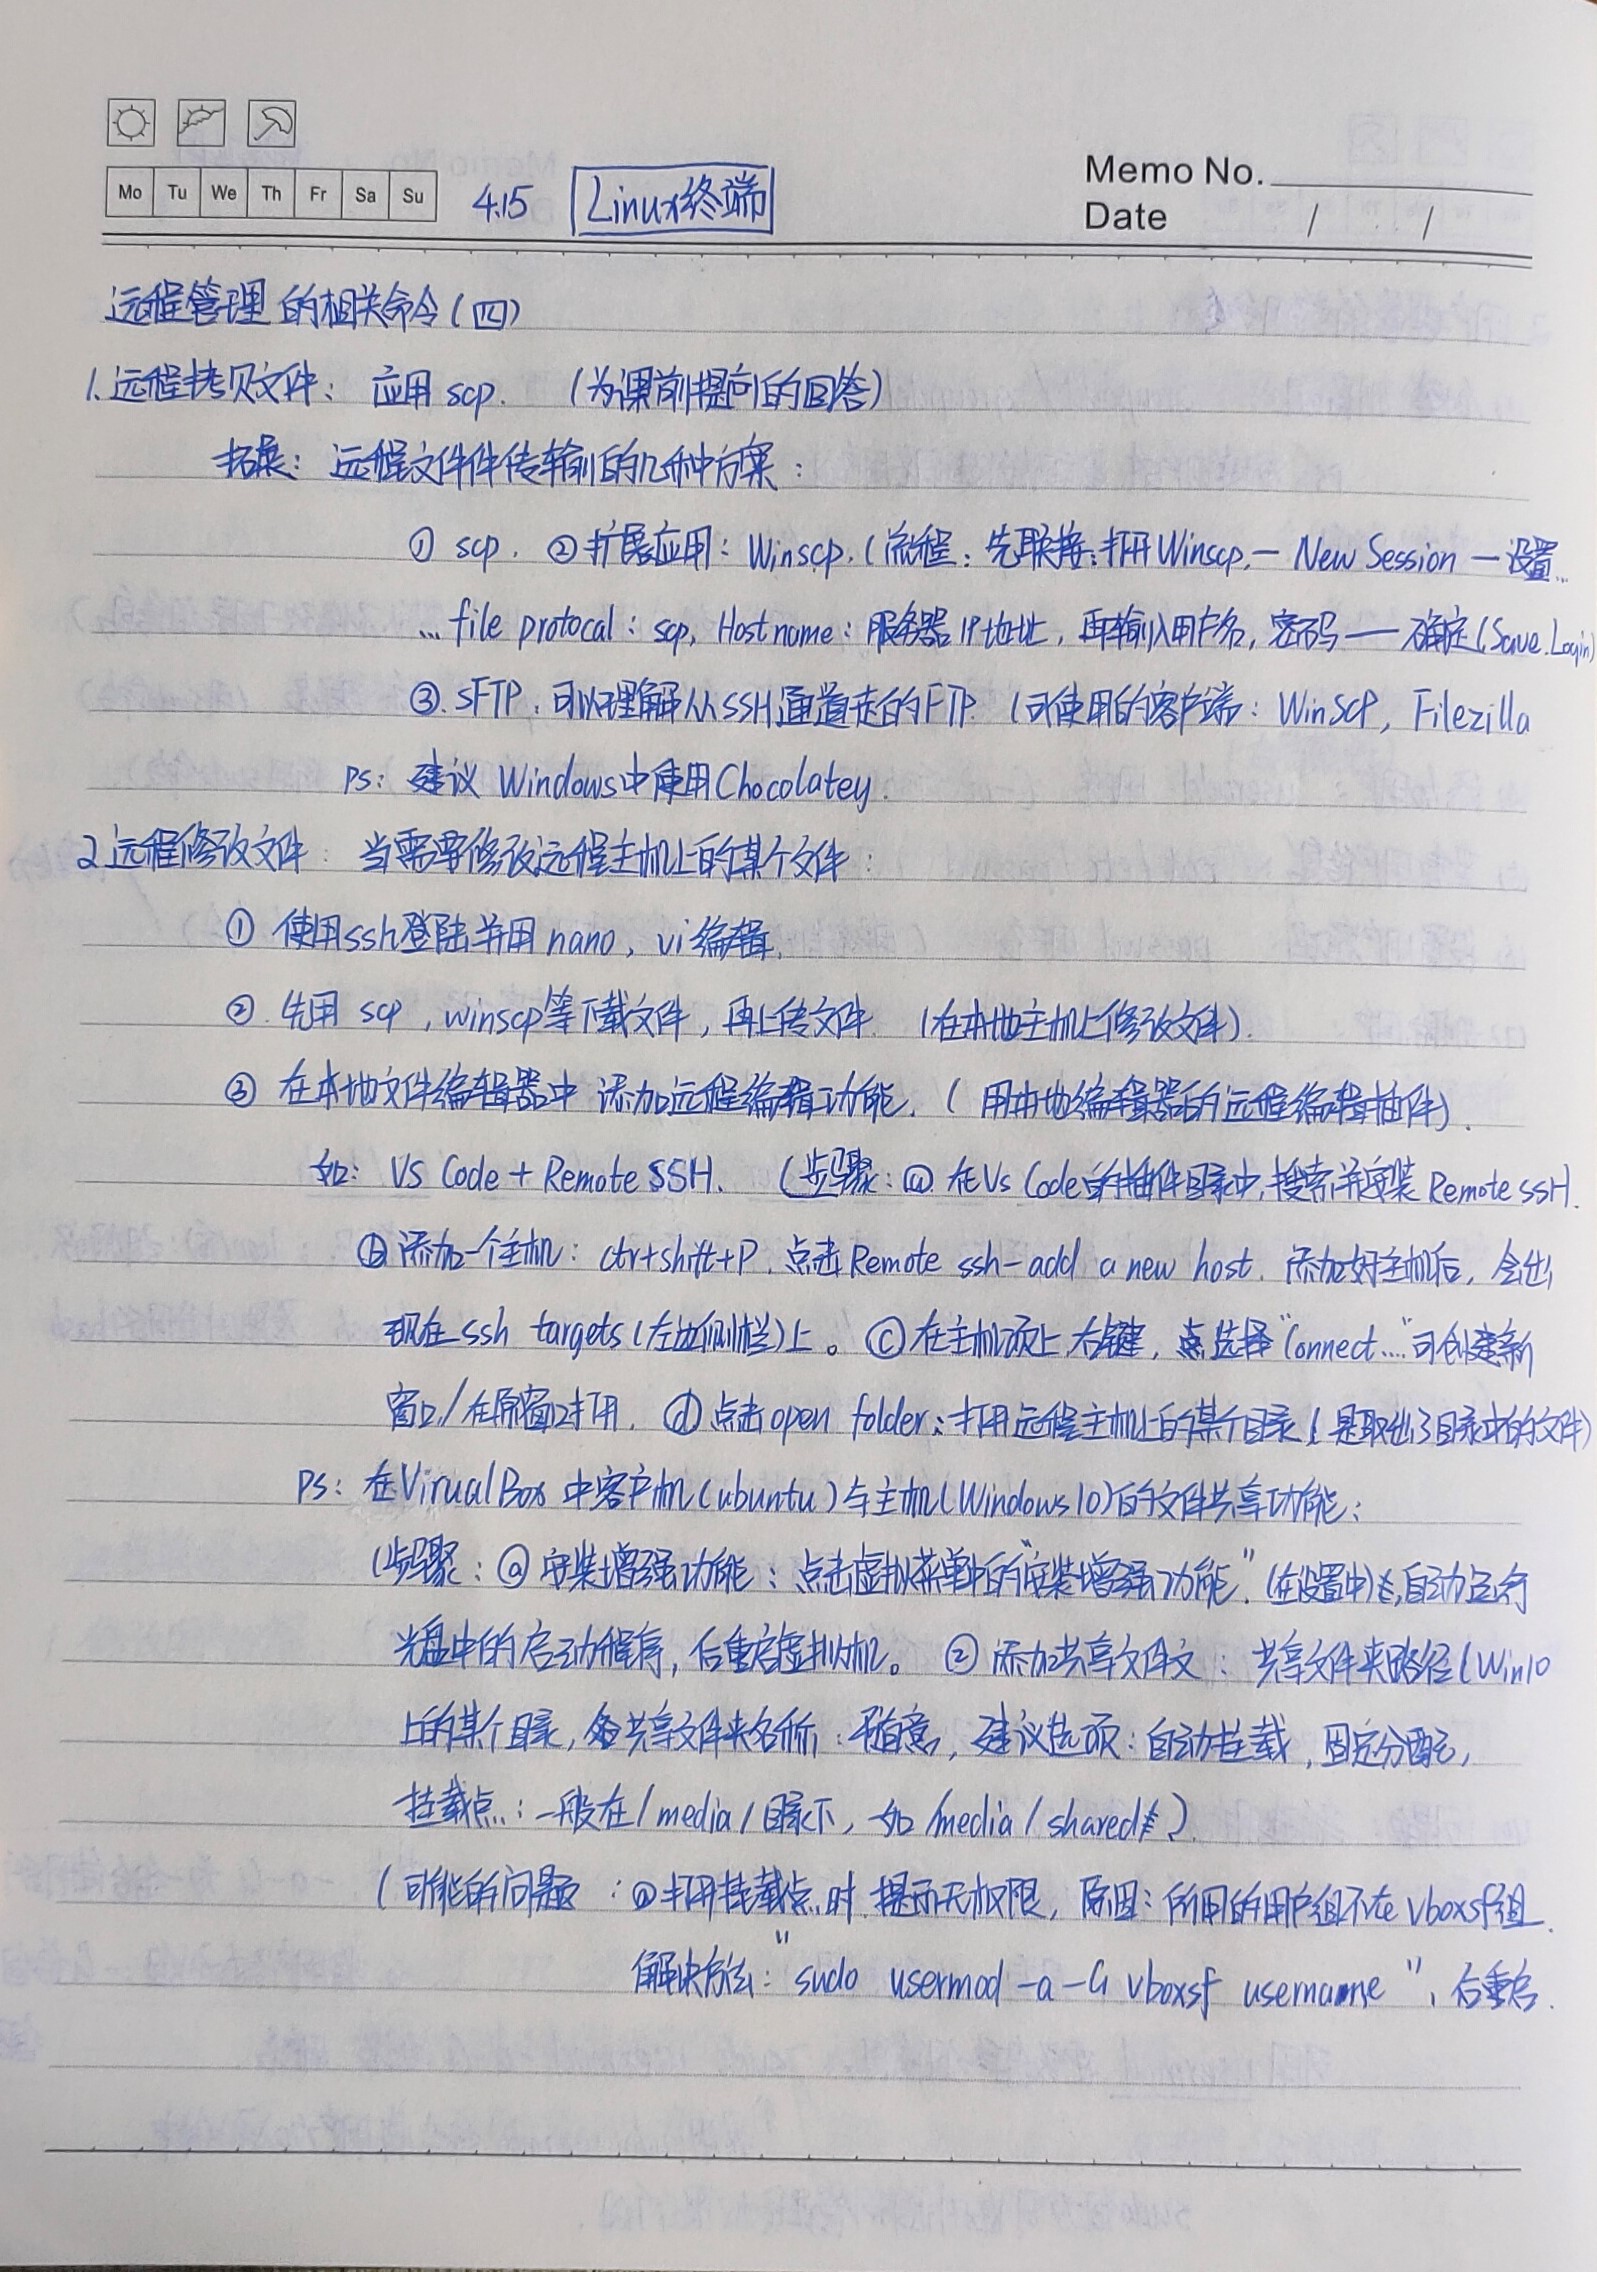 Mo Tu We Th Fr Sa Su 4.15 Linux终端 Memo No.
Date / /
远程管理的相关命令(四)
1.远程拷贝文件: 应用 scp. (为课前提问的回答)
拓展: 远程文件件传输的几种方案:
① scp. ②扩展应用: Winscp. (流程: 先联接:打开Winscp.— New Session — 设置...
... file protocal: scp, Host name: 服务器IP地址, 再输入用户名, 密码 —— 确定(Save.Login)
③. SFTP. 可以理解从SSH通道走的FTP. (可使用的客户端: WinSCP, Filezilla
PS: 建议 Windows中使用Chocolatey.
2.远程修改文件: 当需要修改远程主机上的某个文件:
① 使用ssh登陆并用nano, vi编辑.
②. 先用 scp, winscp等下载文件, 再上传文件. (在本地主机上修改文件).
③ 在本地文件编辑器中 添加远程编辑功能. (用本地编辑器的远程编辑插件).
如: VS Code + Remote SSH. (步骤: ⓐ 在Vs Code的插件目录中,搜索并安装 Remote SSH.
ⓑ 添加一个主机: ctr+shift+P. 点击Remote ssh-add a new host. 添加好主机后, 会出
现在ssh targets(左边侧栏)上。 ⓒ在主机项上右键, 选择"Connect...."可创建新
窗口/在原窗口打开. ⓓ点击open folder:打开远程主机上的某个目录(是取出了目录中的文件)
PS: 在VirualBox 中客户机(ubuntu)与主机(Windows10)的文件共享功能:
(步骤: ⓐ 安装增强功能: 点击虚拟菜单中的"安装增强功能". (在设置中),自动运行
光盘中的启动程序, 后重启虚拟机。 ② 添加共享文件文: 共享文件夹路径(Win10
上的某个目录, 共享文件夹名称: 随意, 建议选项: 自动挂载, 固定分配,
挂载点: 一般在/media/目录下, 如 /media/shared)
(可能的问题: ⓐ打开挂载点时, 提示无权限, 原因: 所用的用户组不在vboxsf组.
解决方法: "sudo usermod -a -G vboxsf username", 后重启.